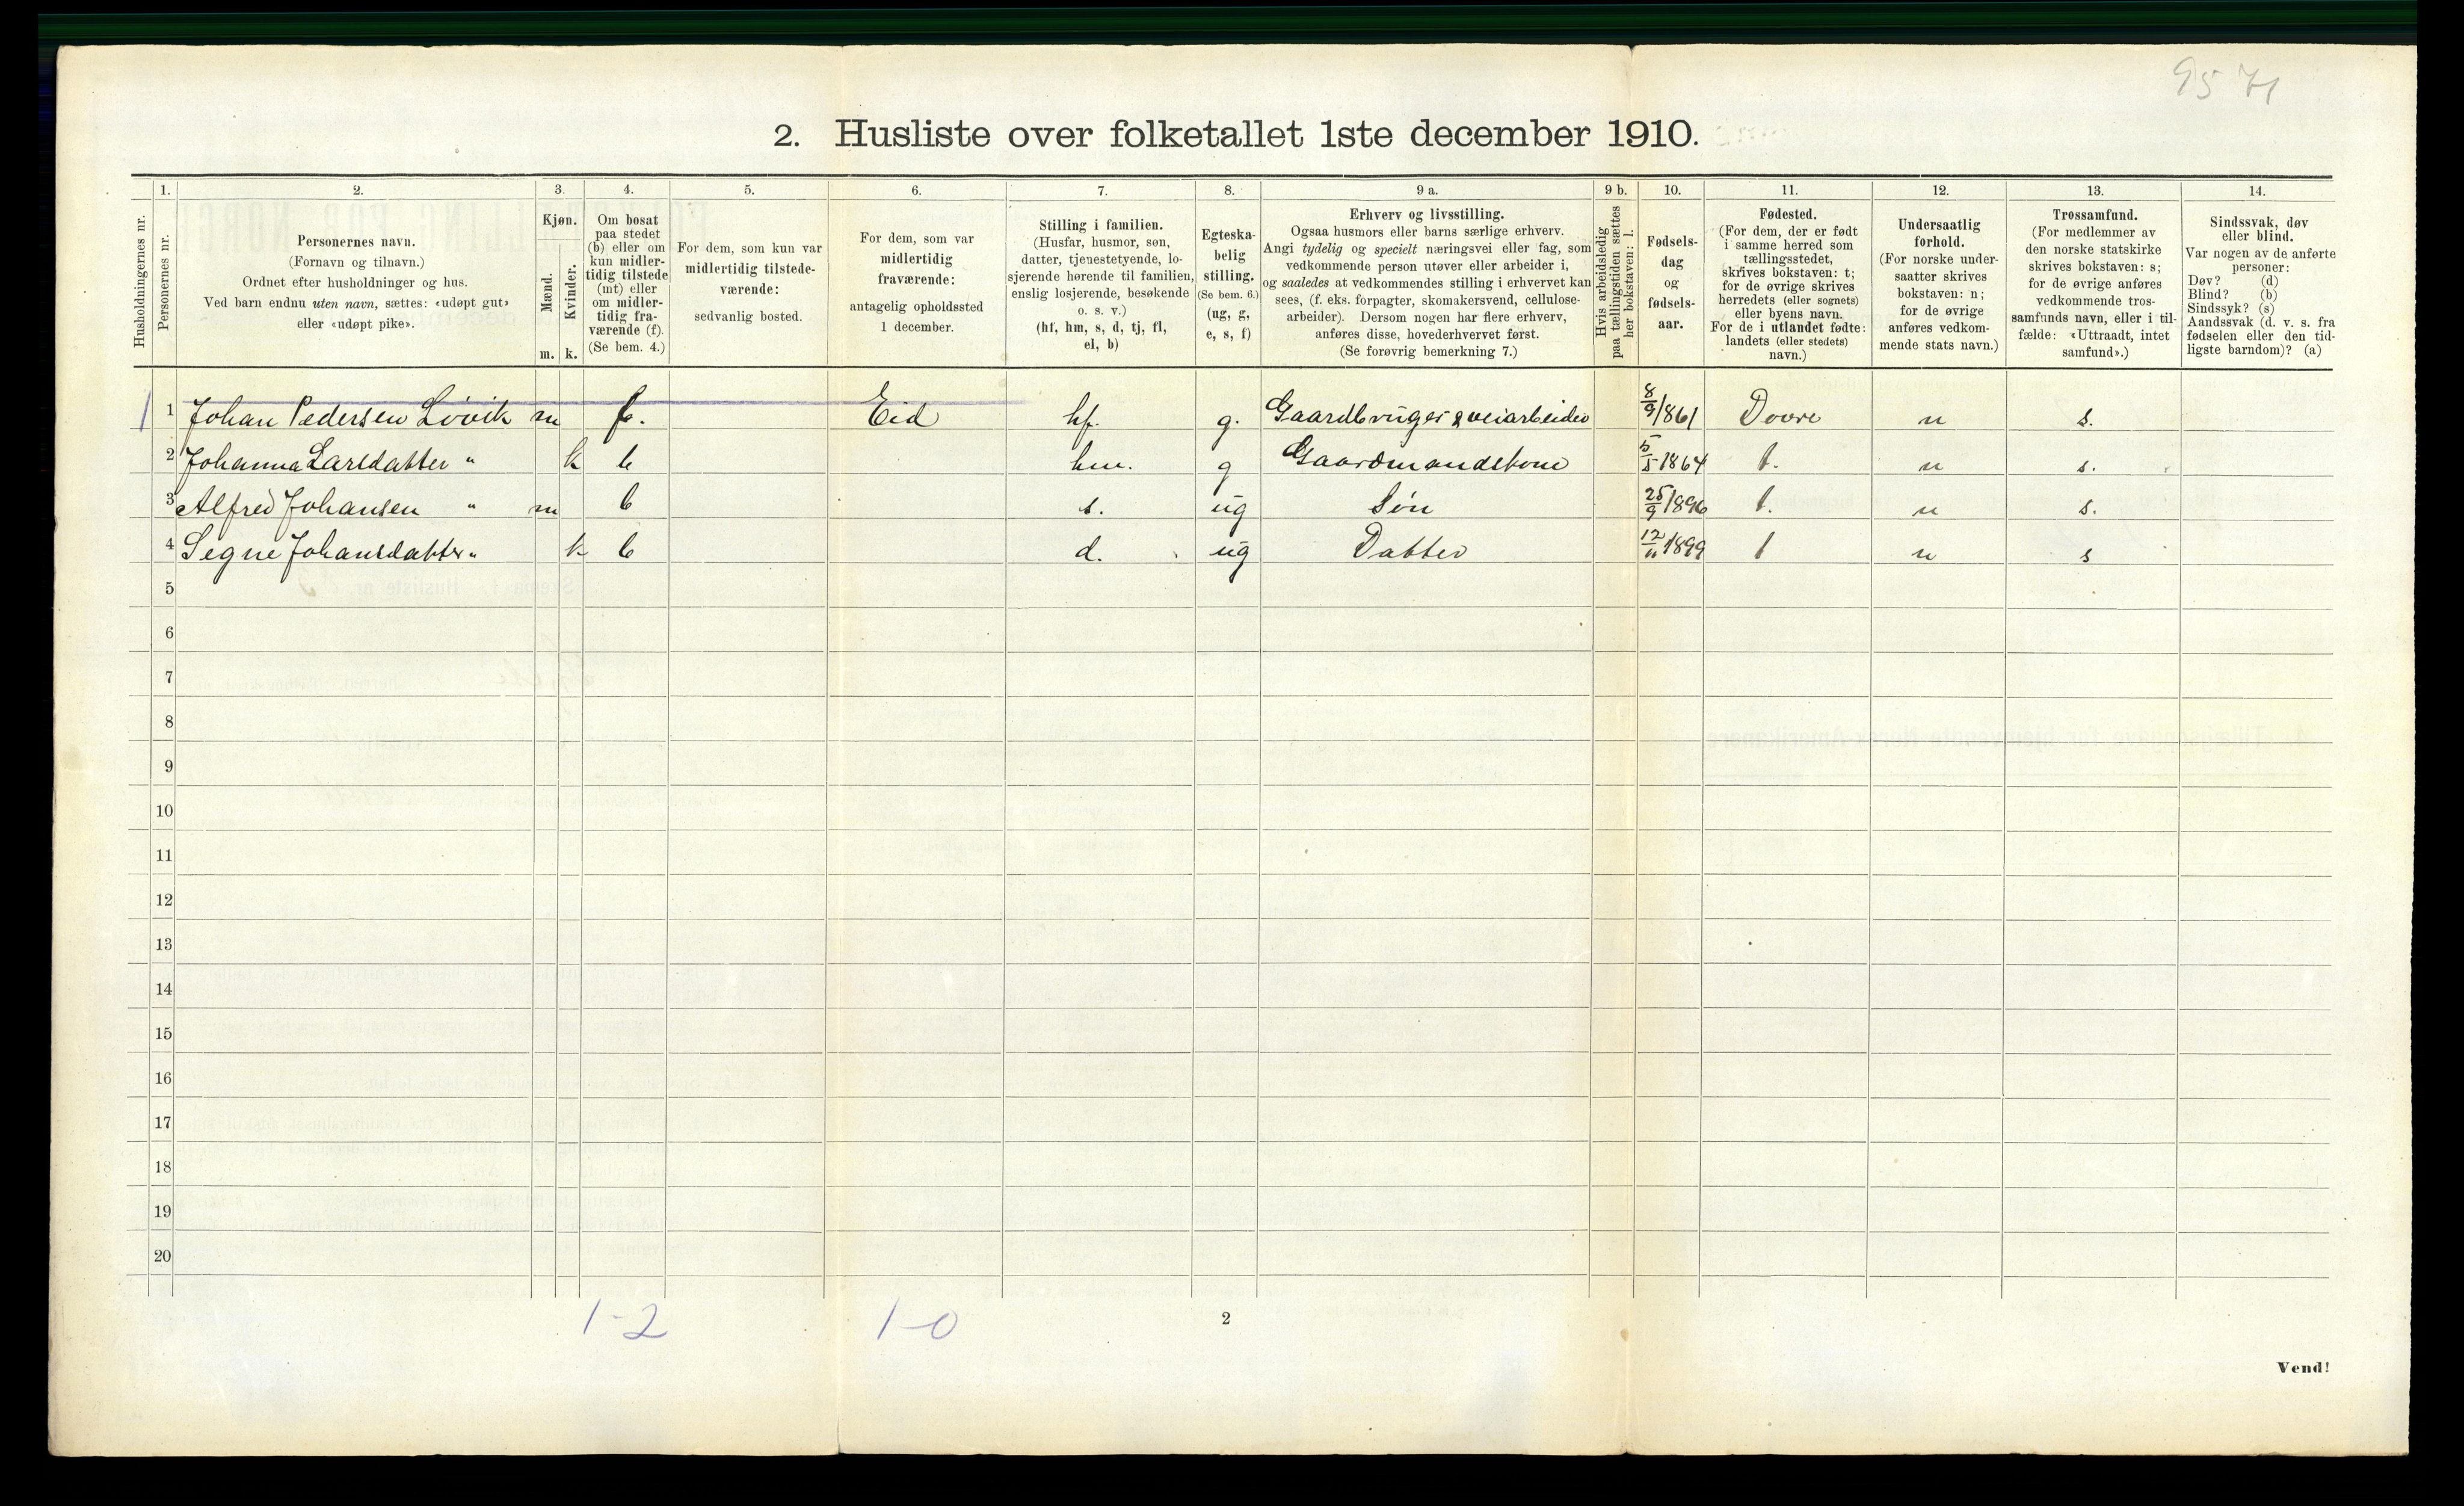 95 71
2. Husliste over folketallet 1ste december 1910.
1. 2. 3. 4. 5. 6. 7. 8. 9 a. 9 b. 10. 11. 12. 13. 14.
Husholdningernes nr.
Personernes nr.
Personernes navn.
(Fornavn og tilnavn.)
Ordnet efter husholdninger og hus.
Ved barn endnu uten navn, sættes: «udøpt gut»
eller «udøpt pike».
Kjøn.
Mænd.
Kvinder.
m. k.
Om bosat
paa stedet
(b) eller om
kun midler-
tidig tilstede
(mt) eller
om midler-
tidig fra-
værende (f).
(Se bem. 4.)
For dem, som kun var
midlertidig tilstede-
værende:
sedvanlig bosted.
For dem, som var
midlertidig
fraværende:
antagelig opholdssted
1 december.
Stilling i familien.
(Husfar, husmor, søn,
datter, tjenestetyende, lo-
sjerende hørende til familien,
enslig losjerende, besøkende
o. s. v.)
(hf, hm, s, d, tj, fl,
el, b)
Egteska-
belig
stilling.
(Se bem. 6.)
(ug, g,
e, s, f)
Erhverv og livsstilling.
Ogsaa husmors eller barns særlige erhverv.
Angi tydelig og specielt næringsvei eller fag, som
vedkommende person utøver eller arbeider i,
og saaledes at vedkommendes stilling i erhvervet kan
sees, (f. eks. forpagter, skomakersvend, cellulose-
arbeider). Dersom nogen har flere erhverv,
anføres disse, hovederhvervet først.
(Se forøvrig bemerkning 7.)
Hvis arbeidsledig
paa tællingstiden sættes
her bokstaven: l.
Fødsels-
dag
og
fødsels-
aar.
Fødested.
(For dem, der er født
i samme herred som
tællingsstedet,
skrives bokstaven: t;
for de øvrige skrives
herredets (eller sognets)
eller byens navn.
For de i utlandet fødte:
landets (eller stedets)
navn.)
Undersaatlig
forhold.
(For norske under-
saatter skrives
bokstaven: n;
for de øvrige
anføres vedkom-
mende stats navn.)
Trossamfund.
(For medlemmer av
den norske statskirke
skrives bokstaven: s;
for de øvrige anføres
vedkommende tros-
samfunds navn, eller i til-
fælde: «Uttraadt, intet
samfund».)
Sindssvak, døv
eller blind.
Var nogen av de anførte
personer:
Døv? (d)
Blind? (b)
Sindssyk? (s)
Aandssvak (d. v. s. fra
fødselen eller den tid-
ligste barndom)? (a)
1 1 Johan Pedersen Løvik m f. Eid hf. g. Gaardbruger & veiarbeider 8/9 1861 Dovre n s.
2 Johanna Larsdatter " k b hm. g Gaardmandskone 5/5 1864 t. n s.
3 Alfred Johansen " m b s. ug Søn 25/9 1896 t. n s.
4 Segne Johansdatter " k b d. ug Datter 12/11 1899 t n s
5
6
7
8
9
10
11
12
13
14
15
16
17
18
19
20
1-2 1-0 2
Vend!